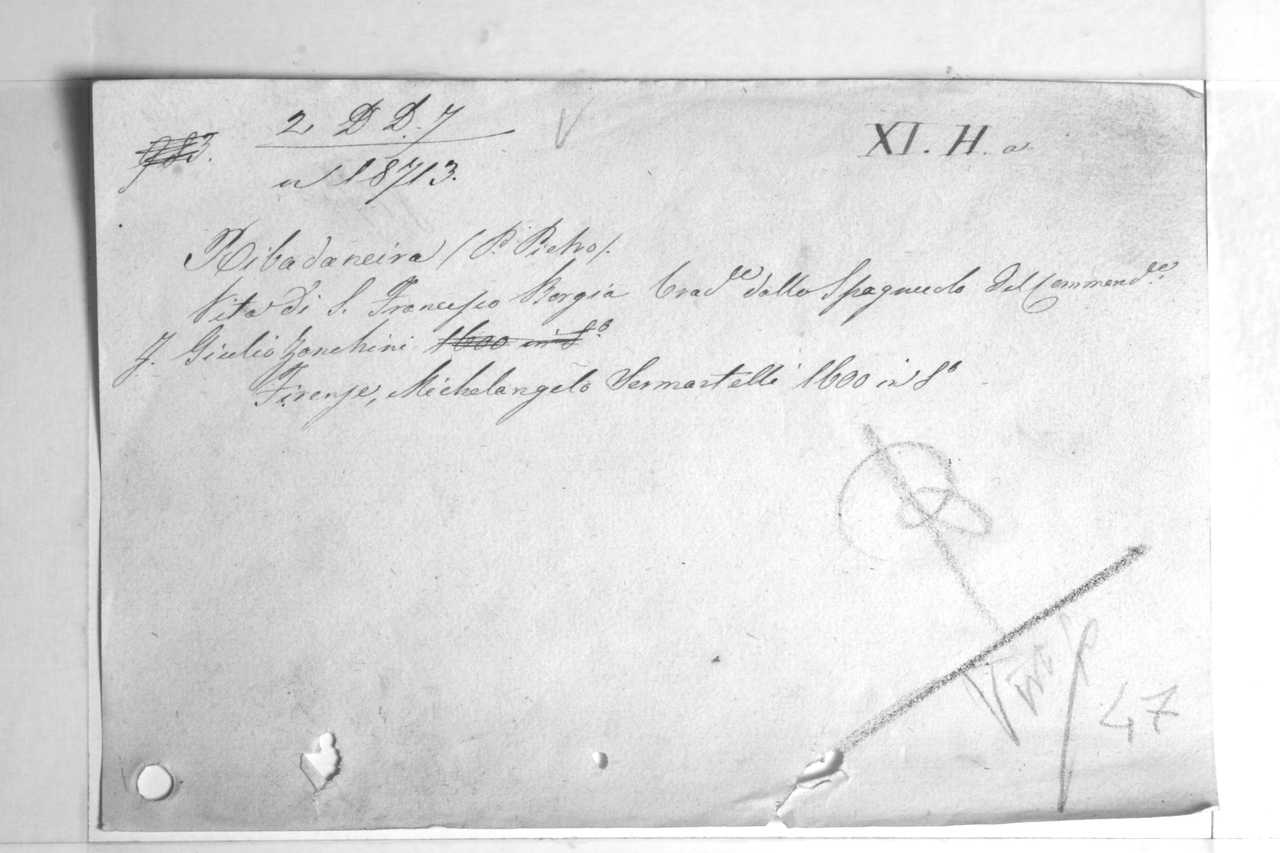 2, D D. 7
XI. H. a.
n 18713.
Ribadaneira (P. Pietro).
Vita di S. Francesco Borgia trad.te dallo Spagnuolo del Commend.re
F. Giulio Zanchini 1600 in 8.o
Firenze, Michelangelo Sermartelli 1600 in 8o
Visto
47